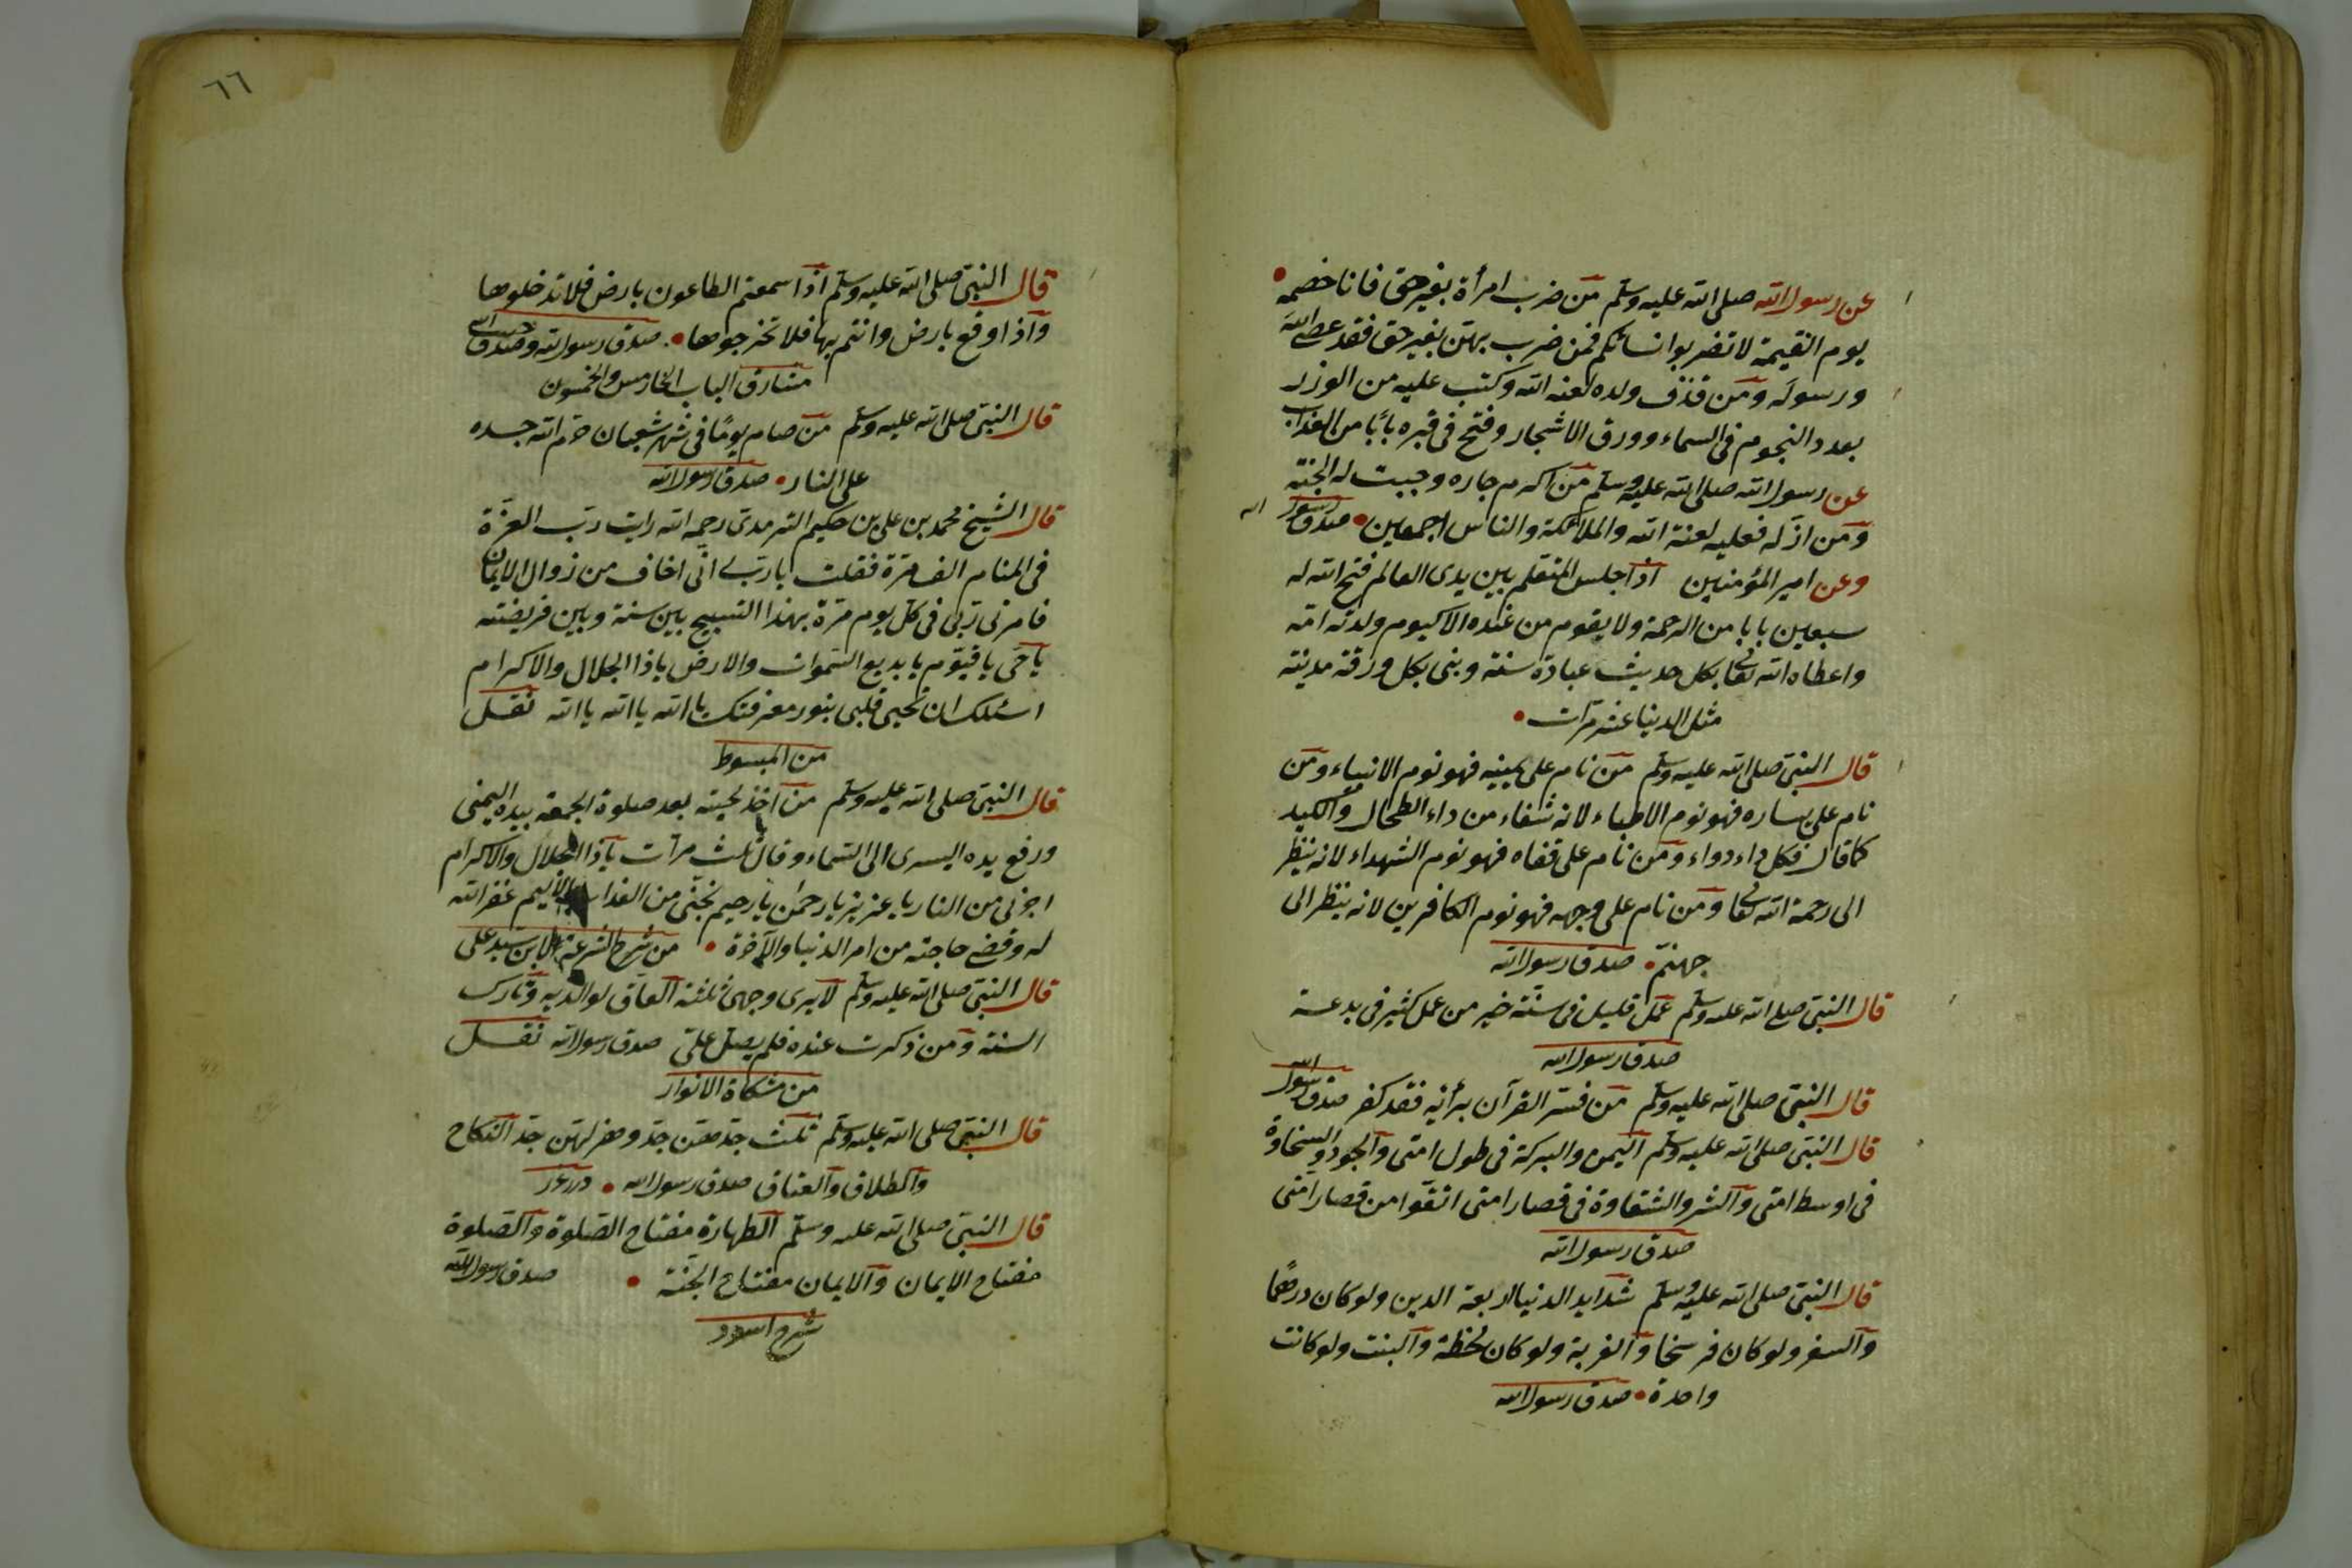 عن رسول الله صلى الله عليه وسلم من ضرب امرأة بغير حق فانا خصمه
يوم القيمة لا تضربوا نسائكم فمن ضرب بهن بغير حق فقد عصى الله
ورسوله ومن قذف ولده لعنه الله وكتب عليه من الوزر
بعدد النجوم فى السماء وورق الاشجار وفتح فى قبره بابا من العذاب
عن رسول الله صلى الله عليه وسلم من اكرم جاره وجبت له الجنة
ومن اذله فعليه لعنة الله والملائكة والناس اجمعين صدق رسول الله
وعن امير المؤمنين اذا جلس المتعلم بين يدى العالم فتح الله له
سبعين بابا من الرحمة ولا يقوم من عنده الا كيوم ولدته امه
واعطاه الله تعا بكل حديث عبادة سنة وبنى بكل ورقة مدينة
مثل الدنيا عشر مرات
قال النبى صلى الله عليه وسلم من نام على يمينه فهو نوم الانبياء ومن
نام على يساره فهو نوم الاطباء لانه شفاء من داء الطحال والكبد
كما قال فكل داء دواء ومن نام على قفاه فهو نوم الشهداء لانه ينظر
الى رحمة الله تعا ومن نام على وجهه فهو نوم الكافرين لانه ينظر الى
جهنم صدق رسول الله
قال النبى صلى الله عليه وسلم عمل قليل فى سنة خير من عمل كثير فى بدعة
صدق رسول الله
قال النبى صلى الله عليه وسلم من فسر القرآن برأيه فقد كفر صدق رسول الله
قال النبى صلى الله عليه وسلم اليمن والبركة فى طول امتى والجود والسخاوة
فى اوسط امتى والشر والشقاوة فى قصار امتى اتقوا من قصار امتى
صدق رسول الله
قال النبى صلى الله عليه وسلم شدايد الدنيا اربعة الدين ولو كان درهما
والسفر ولو كان فرسخا والغربة ولو كان لحظة والبنت ولو كانت
واحدة صدق رسول الله
٦٦
قال النبى صلى الله عليه وسلم اذا سمعتم الطاعون بارض فلا تدخلوها
واذا وقع بارض وانتم بها فلا تخرجوها صدق رسول الله وصدق حبيب الله
مشارق الباب الخامس والخمسون
قال النبى صلى الله عليه وسلم من صام يوما فى شهر شعبان حرم الله جسده
على النار صدق رسول الله
قال الشيخ محمد بن على بن حكيم الترمدى رحمه الله رايت رب العزة
فى المنام الف مرة فقلت يا رب انى اخاف من زوال الايمان
فامرنى ربى فى كل يوم مرة بهذا التسبيح بين سنة وبين فريضته
يا حى يا قيوم يا بديع السموات والارض يا ذا الجلال والاكرام
اسئلك ان تحيى قلبى بنور معرفتك يا الله يا الله يا الله نقل
من المبسوط
قال النبى صلى الله عليه وسلم من اخذ لحيته بعد صلوة الجمعة بيده اليمنى
ورفع يده اليسرى الى السماء وقال ثلث مرات يا ذا الجلال والاكرام
اجرنى من النار يا عزيز يا رحمن يا رحيم نجنى من العذاب الأليم غفر الله
له وقضى حاجته من امر الدنيا والآخرة من شرح الشرعة لابن سيد على
قال النبى صلى الله عليه وسلم لا يرى وجهى ثلثة العاق لوالديه وتارك
السنة ومن ذكرت عنده فلم يصل على صدق رسول الله نقل
من مشكاة الانوار
قال النبى صلى الله عليه وسلم ثلث جدهن جد وهزلهن جد النكاح
والطلاق والعتاق صدق رسول الله درر غرر
قال النبى صلى الله عليه وسلم الطهارة مفتاح الصلوة والصلوة
مفتاح الايمان والايمان مفتاح الجنة صدق رسول الله
شرح اسود